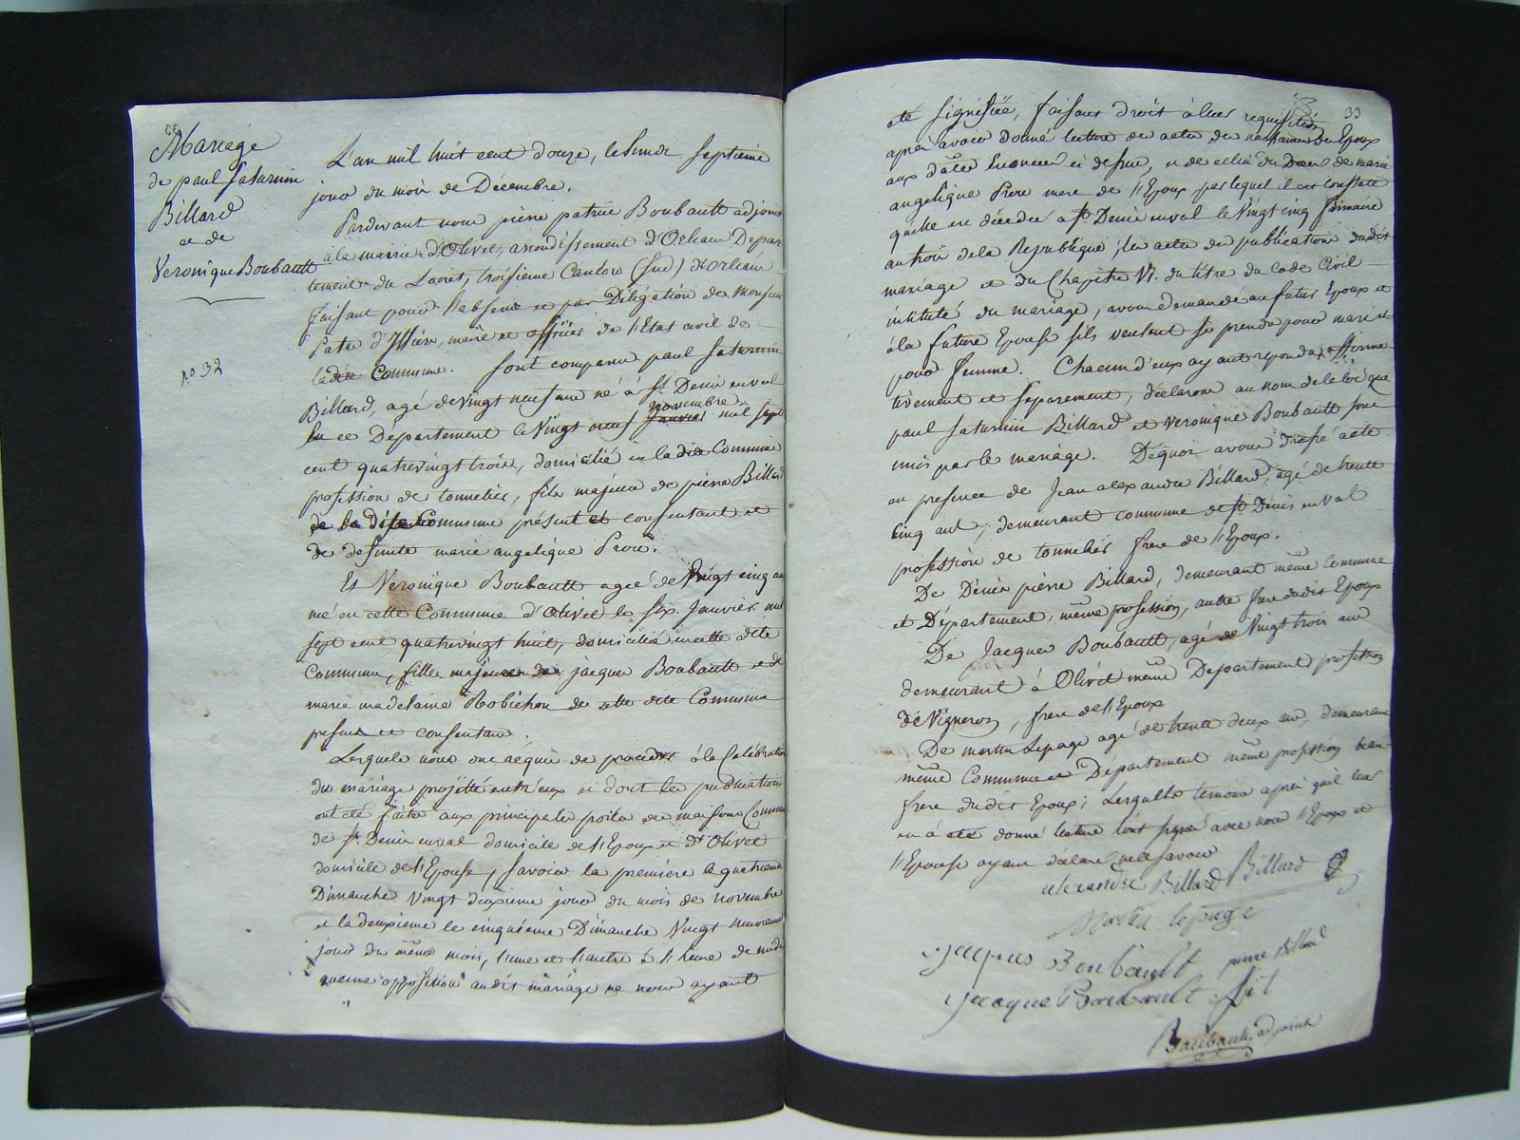 Mariage
de paul Saturnin
Billard
et de
Veronique Boubault
N.o 32
L'an mil huit cent douze, le lundi septième
jour du mois de Décembre.
Pardevant nous pierre patrice Boubault adjoint
à la mairie d'Olivet, arrondissement d'Orleans Depar
tement du Loiret, troisieme Canton (Sud) d'Orleans
faisant pour l'absence et par Délégation de Monsieur
maire et officier de l'Etat civil de
ladite Commune. Sont comparus paul Saturnin
Billard, agé de vingt neuf ans né à St Denis en val
en ce Département le Vingt neuf Janvier novembre mil sept
cent quatrevingt trois, domicilié en ladite Commune
profession de tonnelier, fils majeur de pierre Billard
de la dite Commune présent et consentant et
de defunte marie angelique Prou.
Et Veronique Boubault agée de Vingt cinq ans
née en cette Commune d'Olivet le six Janvier mil
sept cent quatrevingt huit, domiciliée en cette dite
Commune, fille majeure de jacques Boubault et de
marie madelaine Robichon de cette dite Commune
presents et consentans.
Lesquels nous ont réquis de proceder à la Célébration
du mariage projetté entr'eux et dont les publications
ont été faites aux principales portes des maisons Communes
de St Denis en val domicile de l'Epoux et d'Olivet
domicile de l'Epouse, savoir la première le quatrieme
Dimanche Vingt deuxieme jour du mois de novembre
et la deuxieme le cinquieme Dimanche Vingt neuvieme
jour du même mois, l'une et l'autre à l'heure de midi
aucune opposition audit mariage ne nous ayant
33
été signifiée, faisant droit à leur requisition
après avoir donné lecture des actes de naissance des Epoux
aux dates énoncées ci dessus, et de celui du Décès de marie
angelique Prou mere de l'Epoux, par lequel il est constaté
quelle est décédée à St Denis en val le Vingt cinq frimaire
an trois de la Republique; les actes de publications dudit
mariage et du Chapitre VI. du titre du Code Civil
intitulé du mariage, avons demandé au futur Epoux et
à la future Epouse s'ils veulent se prendre pour mari et
pour femme. Chacun d'eux ayant répondu affirma
tivement et séparement, déclarons au nom de la loi que
paul Saturnin Billard et Veronique Boubault sont
unis par le mariage. De quoi avons dressé acte
en presence de Jean alexandre Billard, agé de trente
cinq ans, demeurant commune de St Denis en val
profession de tonnelier frere de l'Epoux.
De Dénis pierre Billard, demeurant même commune
et Département, même profession, autre frere dudit Epoux
De Jacques Boubault, agé de Vingt trois ans
demeurant à Olivet même Departement profession
de Vigneron, frere de l'Epoux
De martin Lepage agé de trente deux ans, demeurant
même Commune et Département même profession beau
frere dudit Epoux; Lesquels temoins après qu'il leur
en à été donné lecture l'ont signé avec nous l'Epoux et
l'Epouse ayant déclaré ne le savoir
alexandre Billard Billard
Martin lepage
jacques Boubault pierre Billard
jacques Boubault fils
Boubault, adjoint